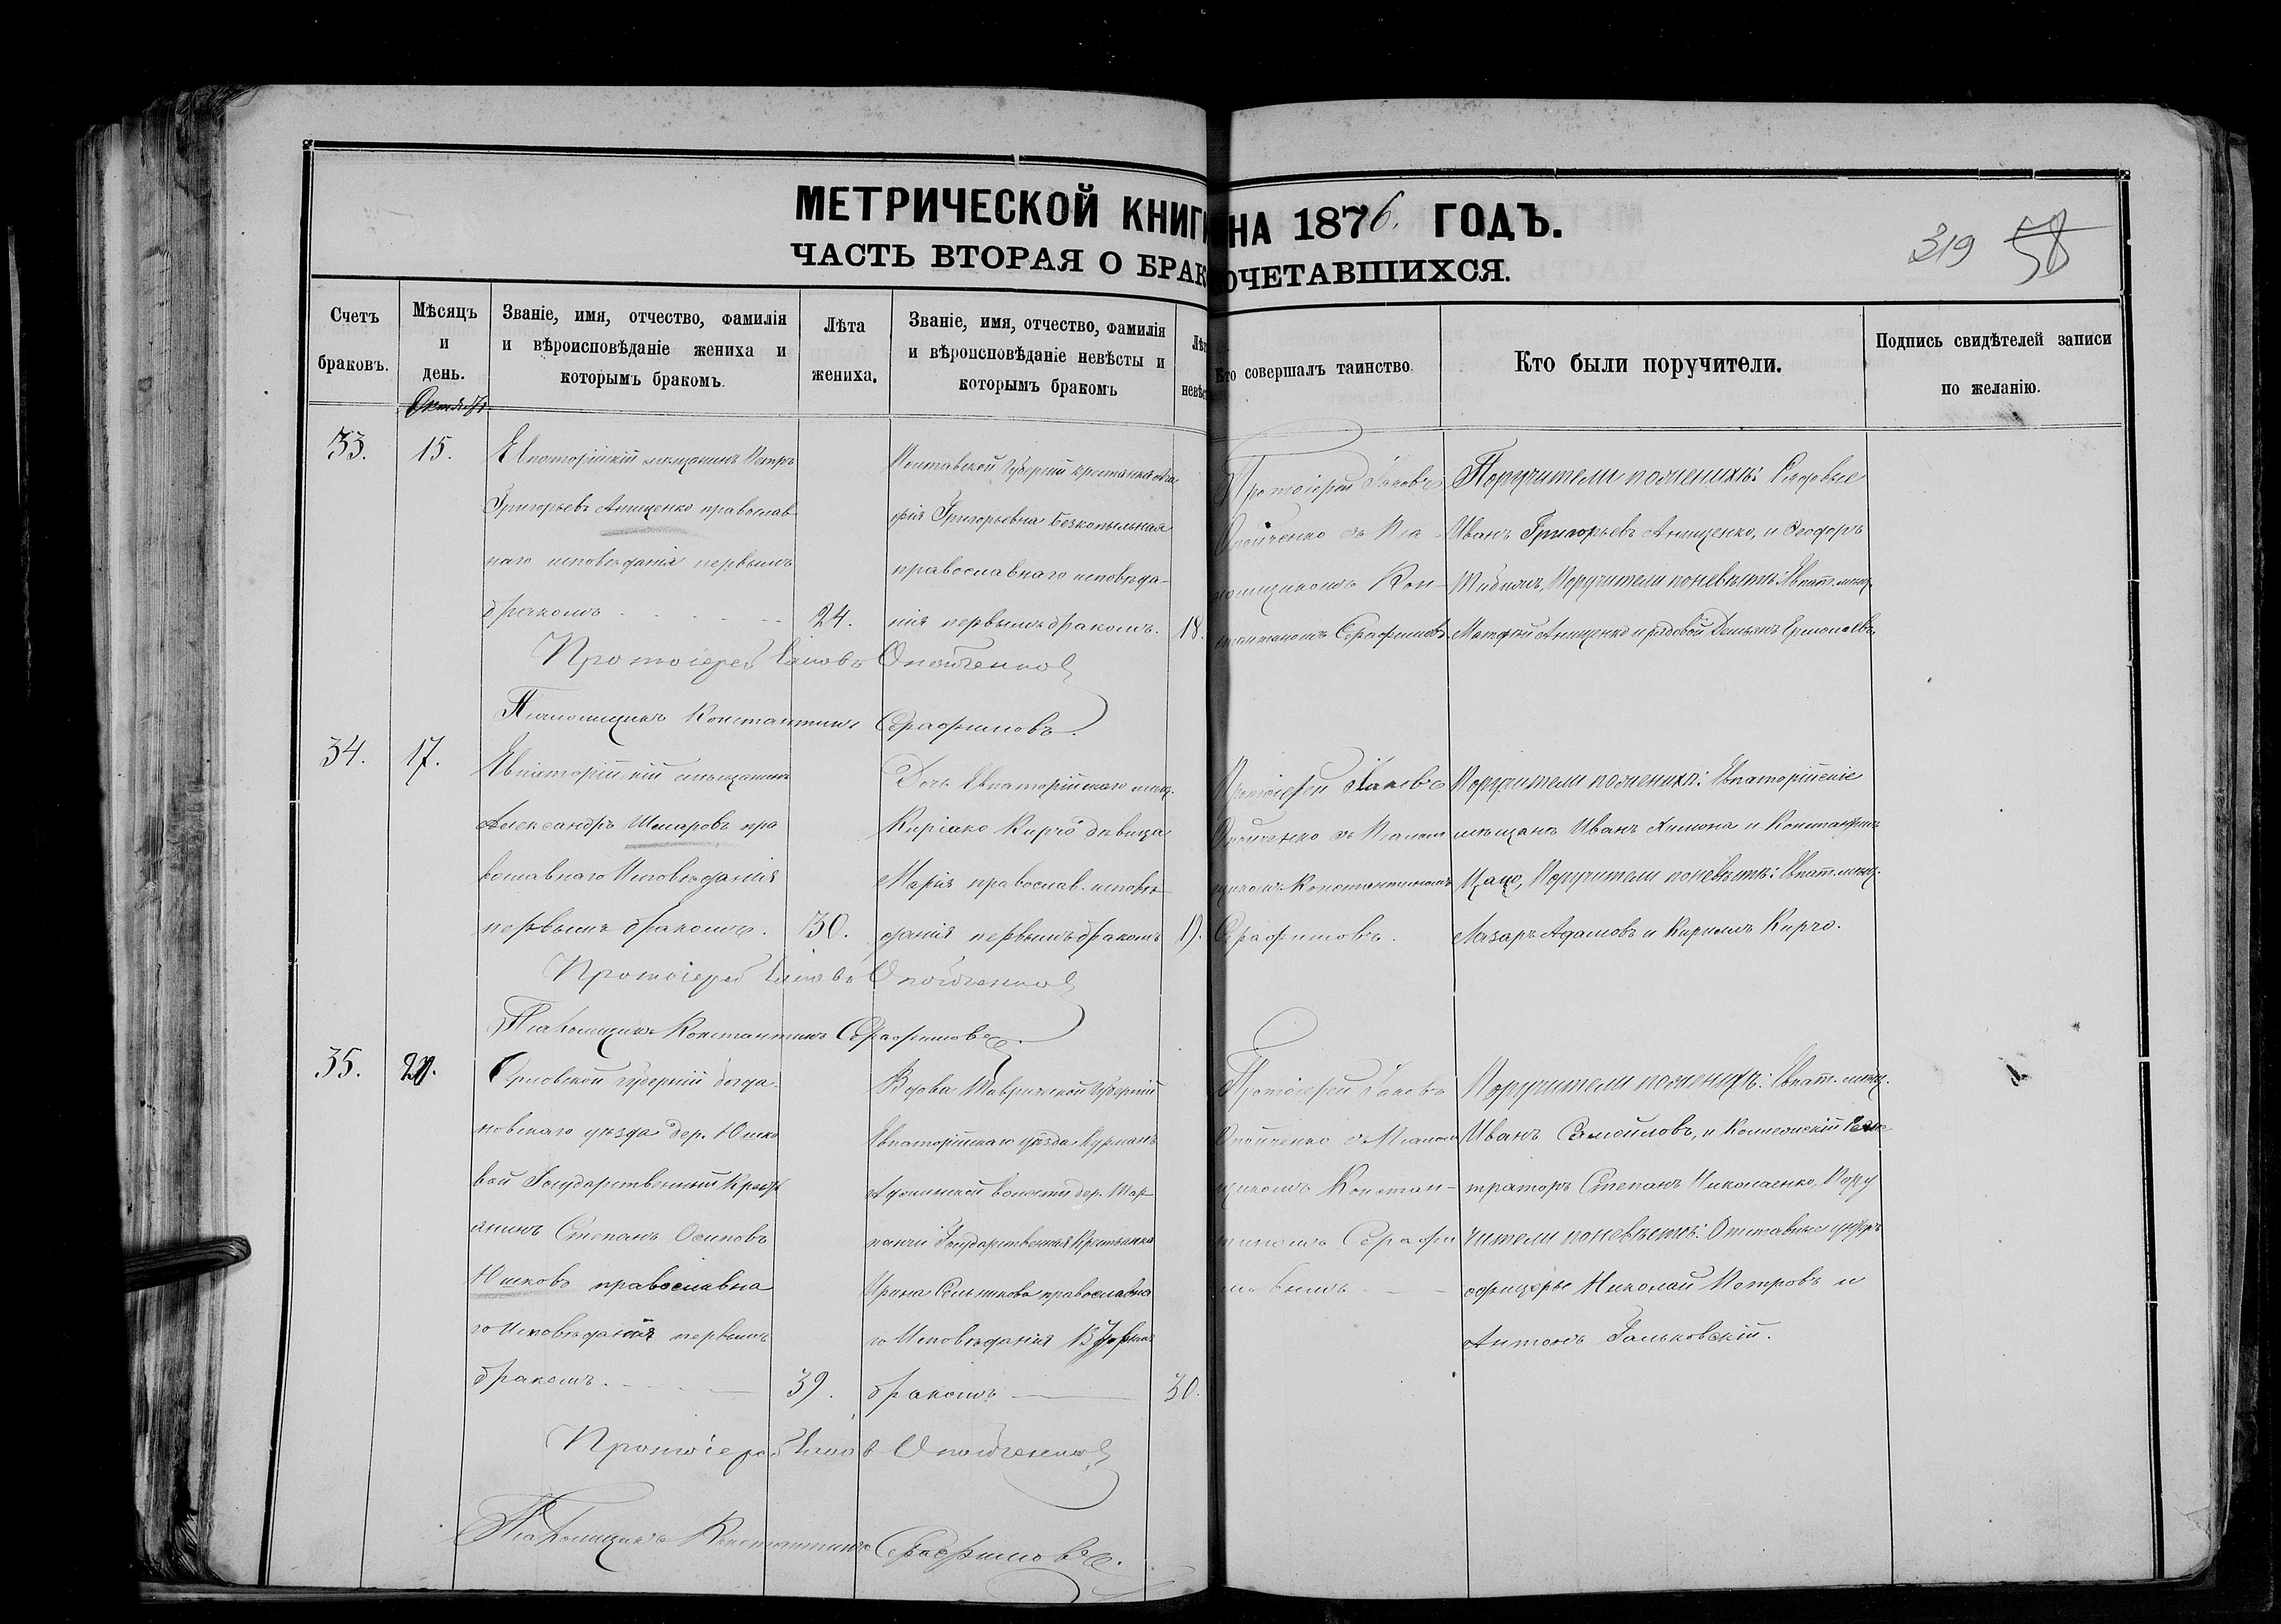 МЕТРИЧЕСКОЙ КНИГИ НА 1876. ГОДЪ.
ЧАСТЬ ВТОРАЯ О БРАКОЧЕТАВШИХСЯ.
319 58
Счетъ браковъ.
Мѣсяцъ и день.
Званіе, имя, отчество, фамилія и вѣроисповѣданіе жениха и которымъ бракомъ.
Лѣта жениха.
Званіе, имя, отчество, фамилія и вѣроисповѣданіе невѣсты и которымъ бракомъ
Лѣ
невѣс
Кто совершалъ таинство
Кто были поручители.
Подпись свидѣтелей записи по желанію.
33.
15.
Евпаторійскій мѣщанинъ Петръ
Григорьевъ Анищенко православ
наго исповѣданія первымъ
бракомъ
24.
Полтавской Губерніи крестьянка Ага
фія Григорьевна Безкопыльная
православнаго исповѣда-
нія первымъ бракомъ.
18.
Протоіерей Іаковъ
Опойченко съ Пса
ломщикомъ Кон-
стантиномъ Серафимовъ
Поручители по женихѣ: Рядовые
Иванъ Григорьевъ Анищенко, и Феодоръ
Поручители по невѣстѣ: Евпат. мѣщ.
Матфей Анищенко и рядовой Демьянъ Ермолаевъ.
Протоіерей Іаковъ Опойченко
Псаломщикъ Константинъ Серафимовъ.
34.
17.
Евпаторійскій мѣщанинъ
Александръ Шмаровъ пра
вославнаго Исповѣданія
первымъ бракомъ.
30.
Дочь Евпаторійскаго мѣщ.
Киріако Кирчо дѣвица
Марія православ. исповѣ
данія первымъ бракомъ
19.
Протоіерей Іаковъ
Опойченко съ Псалом
щикомъ Константиномъ
Серафимовъ.
Поручители по женихѣ: Евпаторійскіе
мѣщане Иванъ и Константинъ
Поручители по невѣстѣ: Евпат. мѣщ.
Лазарь Адамовъ и Кирилъ Кирчо.
Протоіерей Іаковъ Опойченко
Псаломщикъ Константинъ Серафимовъ.
35.
Орловской Губерніи
уѣзда дер. Юшко
вой Государственный Крестья
нинъ Степанъ Осиповъ
Юшковъ православна
го Исповѣданія первымъ
бракомъ.
39.
Вдова Таврической Губерніи
Евпаторійскаго уѣзда Курманъ
Аджинской волости дер.
Государственная Крестьянка
Ирина православна
го Исповѣданія Вторымъ
бракомъ
30.
Протоіерей Іаковъ
Опойченко съ Псалом
щикомъ Констан-
тиномъ Серафи
мовымъ
Поручители по женихѣ: Евпат. мѣщ.
Иванъ Самойловъ, и Коллежскій Регис
траторъ Степанъ Николаенко, Пору
чители по невѣстѣ: Отставные унтеръ
офицеры Николай Петровъ и
Антонъ Гальковскій.
Протоіерей Іаковъ Опойченко
Псаломщикъ Константинъ Серафимовъ.